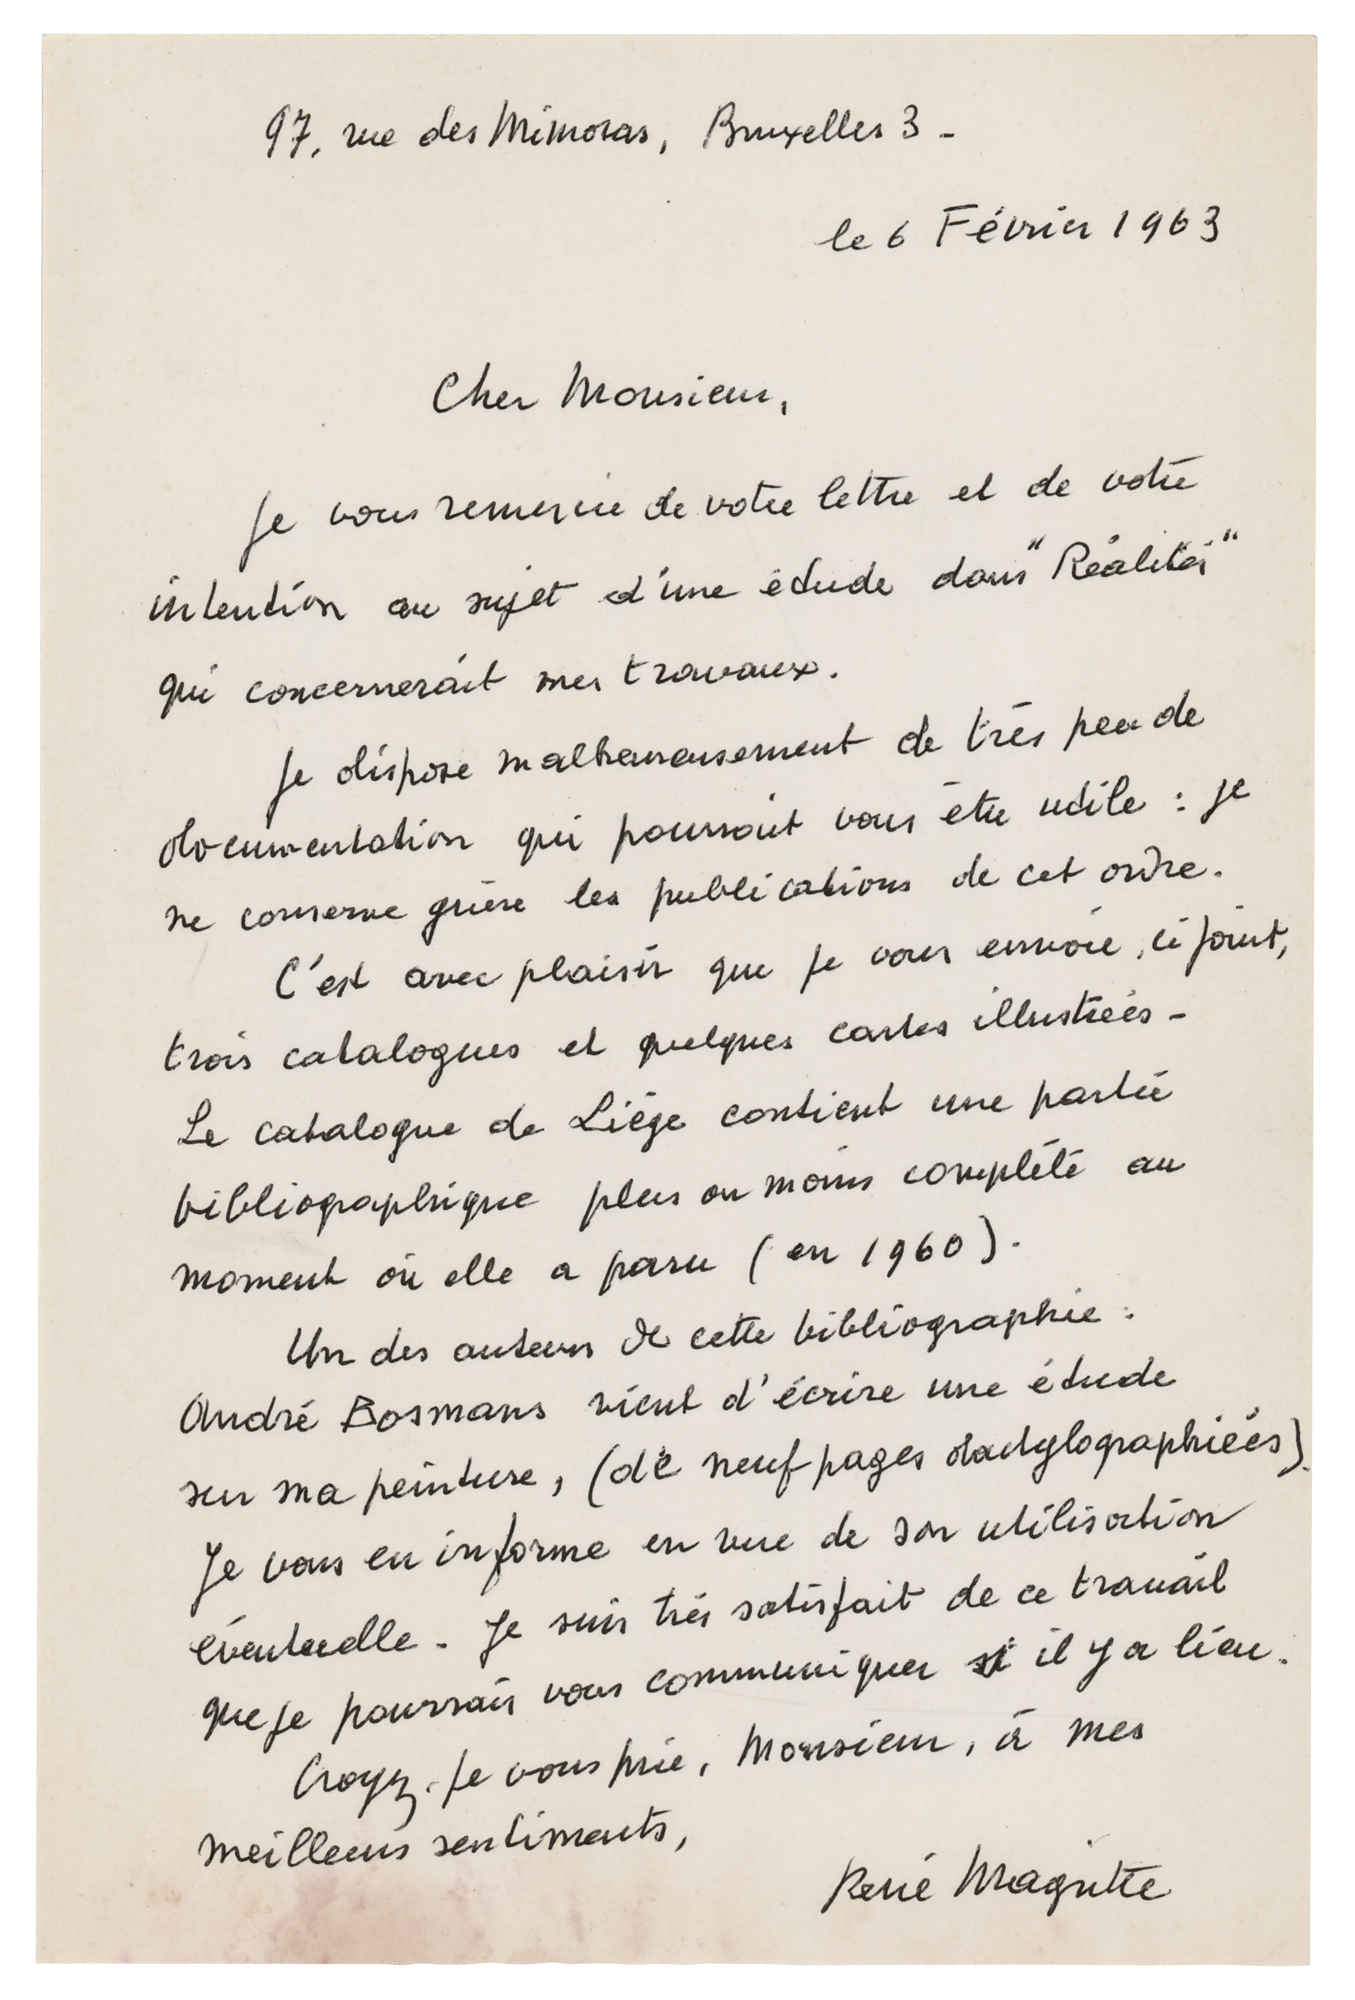 97, rue des Mimosas, Bruxelles 3 -
le 6 Février 1963
Cher Monsieur,
Je vous remercie de votre lettre et de votre
intention au sujet d'une étude dans "Réalités"
qui concernerait mes travaux.
Je dispose malheureusement de très peu de
documentation qui pourrait vous être utile : je
ne conserve guère les publications de cet ordre.
C'est avec plaisir que je vous envoie, ci joint,
trois catalogues et quelques cartes illustrées -
Le catalogue de Liège contient une partie
bibliographique plus ou moins complète au
moment où elle a paru (en 1960).
Un des auteurs de cette bibliographie :
André Bosmans vient d'écrire une étude
sur ma peinture, (de neuf pages dactylographiées).
Je vous en informe en vue de son utilisation
éventuelle. Je suis très satisfait de ce travail
que je pourrais vous communiquer si il y a lieu.
Croyez, je vous prie, Monsieur, à mes
meilleurs sentiments,
René Magritte